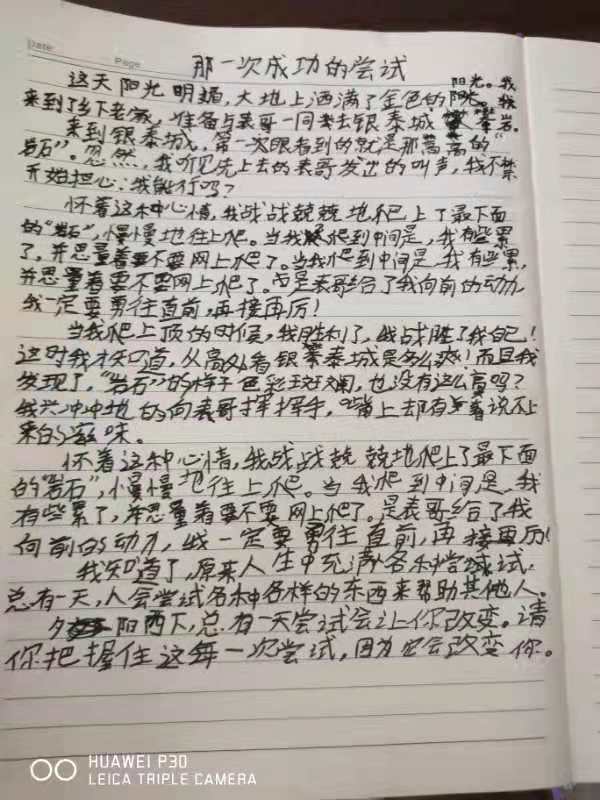 Date:
Page
那一次成功的尝试
这天阳光明媚,大地上洒满了金色的阳光。我
来到了乡下老家,准备与表哥一同去银泰城攀岩。
来到银泰城,第一次眼看到的就是那高高的“
岩石”。忽然,我听见先上去的表哥发出的叫声,我不禁
开始担心:我能行吗?
怀着这种心情,我战战兢兢地爬上了最下面
的“岩石”,慢慢地往上爬。当我爬到中间是,我有些累
了,并思量着要不要网上爬了。当我爬到中间是,我有些累,
并思量着要不要网上爬了。是表哥给了我向前的动力,
我一定要勇往直前,再接再厉!
当我爬上顶的时候,我胜利了,我战胜了我自己!
这时我才知道,从高处看银泰城是多么爽!而且我
发现了,“岩石”的样子色彩斑斓,也没有这么高吗?
我兴冲冲地的向表哥挥挥手,嘴上却有着说不上
来的滋味。
怀着这种心情,我战战兢兢地爬上了最下面
的“岩石”,慢慢地往上爬。当我爬到中间是,我
有些累了,并思量着要不要网上爬了。是表哥给了我
向前的动力,我一定要勇往直前,再接再厉!
我知道了,原来人生中充满各种尝试,
总有一天,人会尝试各种各样的东西来帮助其他人。
夕阳西下,总有一天尝试会让你改变。请
你把握住这每一次尝试,因为它会改变你。
HUAWEI P30
LEICA TRIPLE CAMERA